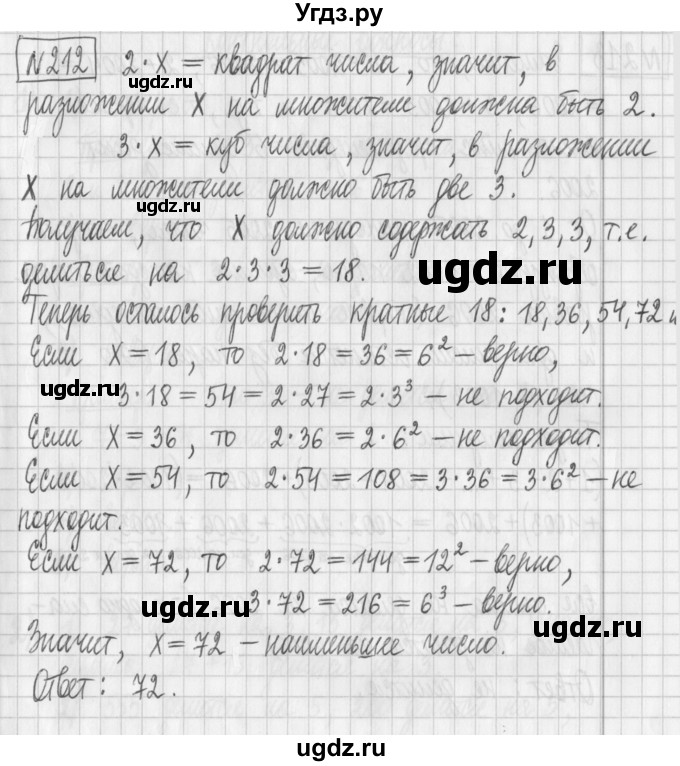 Угдз.ру
№212 2·X = квадрат числа, значит, в
ugdz.ru
разложении X на множители должна быть 2.
3·x = куб числа, значит, в разложении
X на множители должно быть две 3.
ugdz.ru
Получаем, что X должно содержать 2, 3, 3, т.е.
делиться на 2·3·3 = 18.
ugdz.ru
Теперь осталось проверить кратные 18: 18, 36, 54, 72 и
Если X = 18, то 2·18 = 36 = 6² – верно,
ugdz.ru
3·18 = 54 = 2·27 = 2·3³ – не подходит.
Если X = 36, то 2·36 = 2·6² – не подходит.
Если X = 54, то 2·54 = 108 = 3·36 = 3·6² – не
подходит.
Если X = 72, то 2·72 = 144 = 12² – верно,
3·72 = 216 = 6³ – верно.
ugdz.ru
ugdz.ru
Значит, X = 72 – наименьшее число.
Ответ: 72.
ugdz.ru